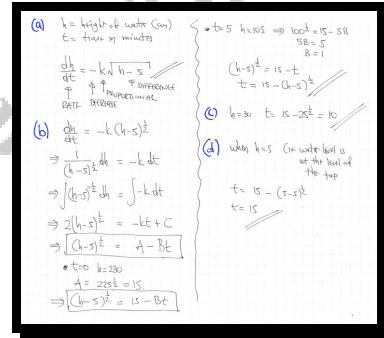 (a) h = height of water (cm)
t = time in minutes
dh/dt = -k√(h-5)
↑ ↑ ↑ DIFFERENCE
PROPORTIONAL
RATE DECREASE
(b) dh/dt = -k(h-5)^½
⇒ 1/(h-5)^½ dh = -k dt
⇒ ∫(h-5)^-½ dh = ∫-k dt
⇒ 2(h-5)^½ = -kt + C
⇒ (h-5)^½ = A - Bt
• t=0 h=230
A = 225^½ = 15
⇒ (h-5)^½ = 15 - Bt
• t=5 h=105 ⇒ 100^½ = 15 - 5B
5B = 5
B = 1
(h-5)^½ = 15 - t
t = 15 - (h-5)^½
(c) h=30 t = 15 - 25^½ = 10
(d) when h=5 (ie water level is
at the level of
the tap
t = 15 - (5-5)^½
t = 15